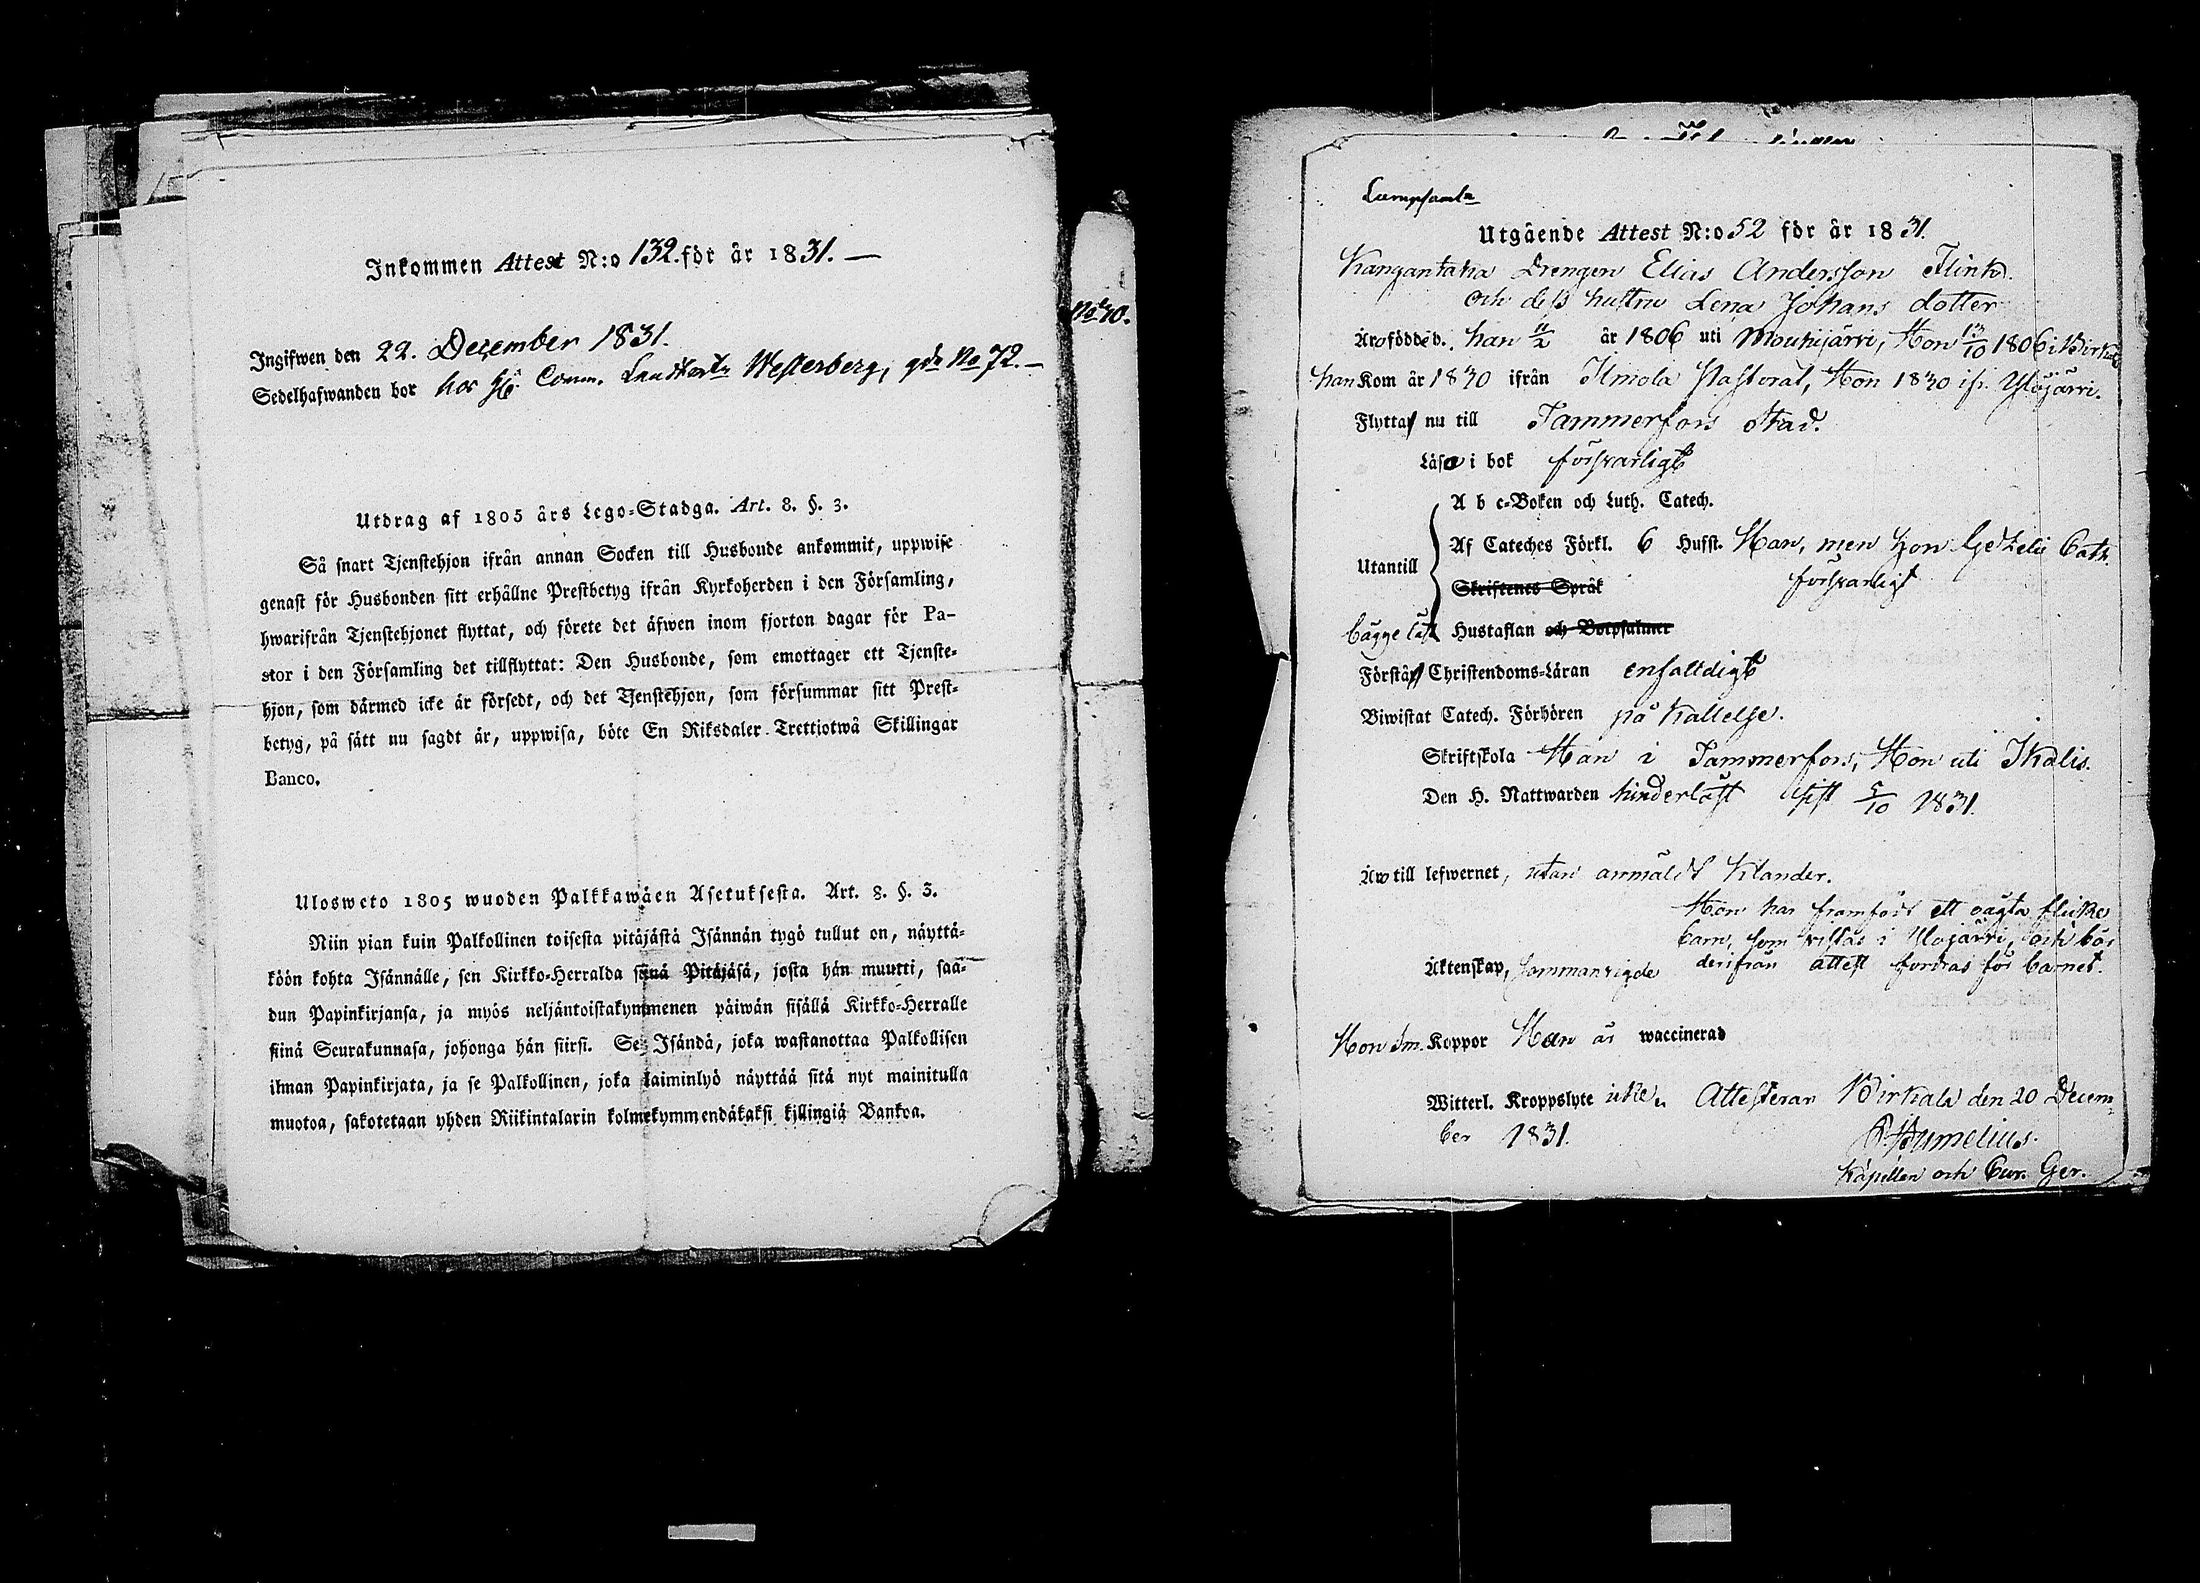 Inkommen Attest N:o 132. för år 1831. —
Ingifwen den 22. December 1831.
Sedelhafwanden bor hos Comm. Westerberg, gdn No 72. —
Utdrag af 1805 års Lego-Stadga. Art. 8. §. 3.
Så snart Tjenstehjon ifrån annan Socken till Husbonde ankommit, uppwise
genast för Husbonden sitt erhållne Prestbetyg ifrån Kyrkoherden i den Församling,
hwarifrån Tjenstehjonet flyttat, och förete det äfwen inom fjorton dagar för Pa-
stor i den Församling det tillflyttat: Den Husbonde, som emottager ett Tjenste-
hjon, som därmed icke är försedt, och det Tjenstehjon, som försummar sitt Prest-
betyg, på sätt nu sagdt är, uppwisa, böte En Riksdaler Trettiotwå Skillingar
Banco.
Ulosweto 1805 wuoden Palkkawäen Asetuksesta. Art. 8. §. 3.
Niin pian kuin Palkollinen toisesta pitäjästä Isännän tygö tullut on, näyttä-
köön kohta Isännälle, sen Kirkko-Herralda siinä Pitäjäsä, josta hän muutti, saa-
dun Papinkirjansa, ja myös neljäntoistakymmenen päiwän sisällä Kirkko-Herralle
siinä Seurakunnasa, johonga hän siirsi. Se Isändä, joka wastanottaa Palkollisen
ilman Papinkirjata, ja se Palkollinen, joka laiminlyö näyttää sitä nyt mainitulla
muotoa, sakotetaan yhden Riikintalarin kolmekymmendäkaksi kjllingiä Bankoa.
No 70.
Utgående Attest N:o 52 för år 1831.
Kangantaka Drengen Elias Andersson Flink
och dess hustru Lena Johans dotter
Äro födde d. han 11/2 år 1806 uti Mouhijärvi, Hon 13/10 1806 i Birkala
han Kom år 1830 ifrån Ilmola Pastorat, Hon 1830 ifr. Ylöjärvi.
Flytta nu till Tammerfors Stad.
Läsa i bok försvarligt
A b c-Boken och Luth. Catech.
Utantill Af Cateches Förkl. 6 Hufst. Han, men hon Gezelii Cath.
Skriftenes Språk försvarligt
bägge läst Hustaflan och Botpsalmer
Förstå Christendoms-Läran enfaldigt
Biwistat Catech. Förhören på kallelse.
Skriftskola Han i Tammerfors, Hon uti Ikalis.
Den H. Nattwarden hinderlöst sist 5/10 1831.
Äro till lefwernet, utan anmäldt klander.
Hon har framfödt ett oägta flicke
barn, som vistas i Ylöjärvi, och bör
Äktenskap, sammanvigde derifrån attest fordras för barnet.
Hon im. Koppor Han är waccinerad
Witterl. Kroppslyte icke. Attesterar Birkala den 20 Decem-
ber 1831.
Kapellan och Cur. Ger.